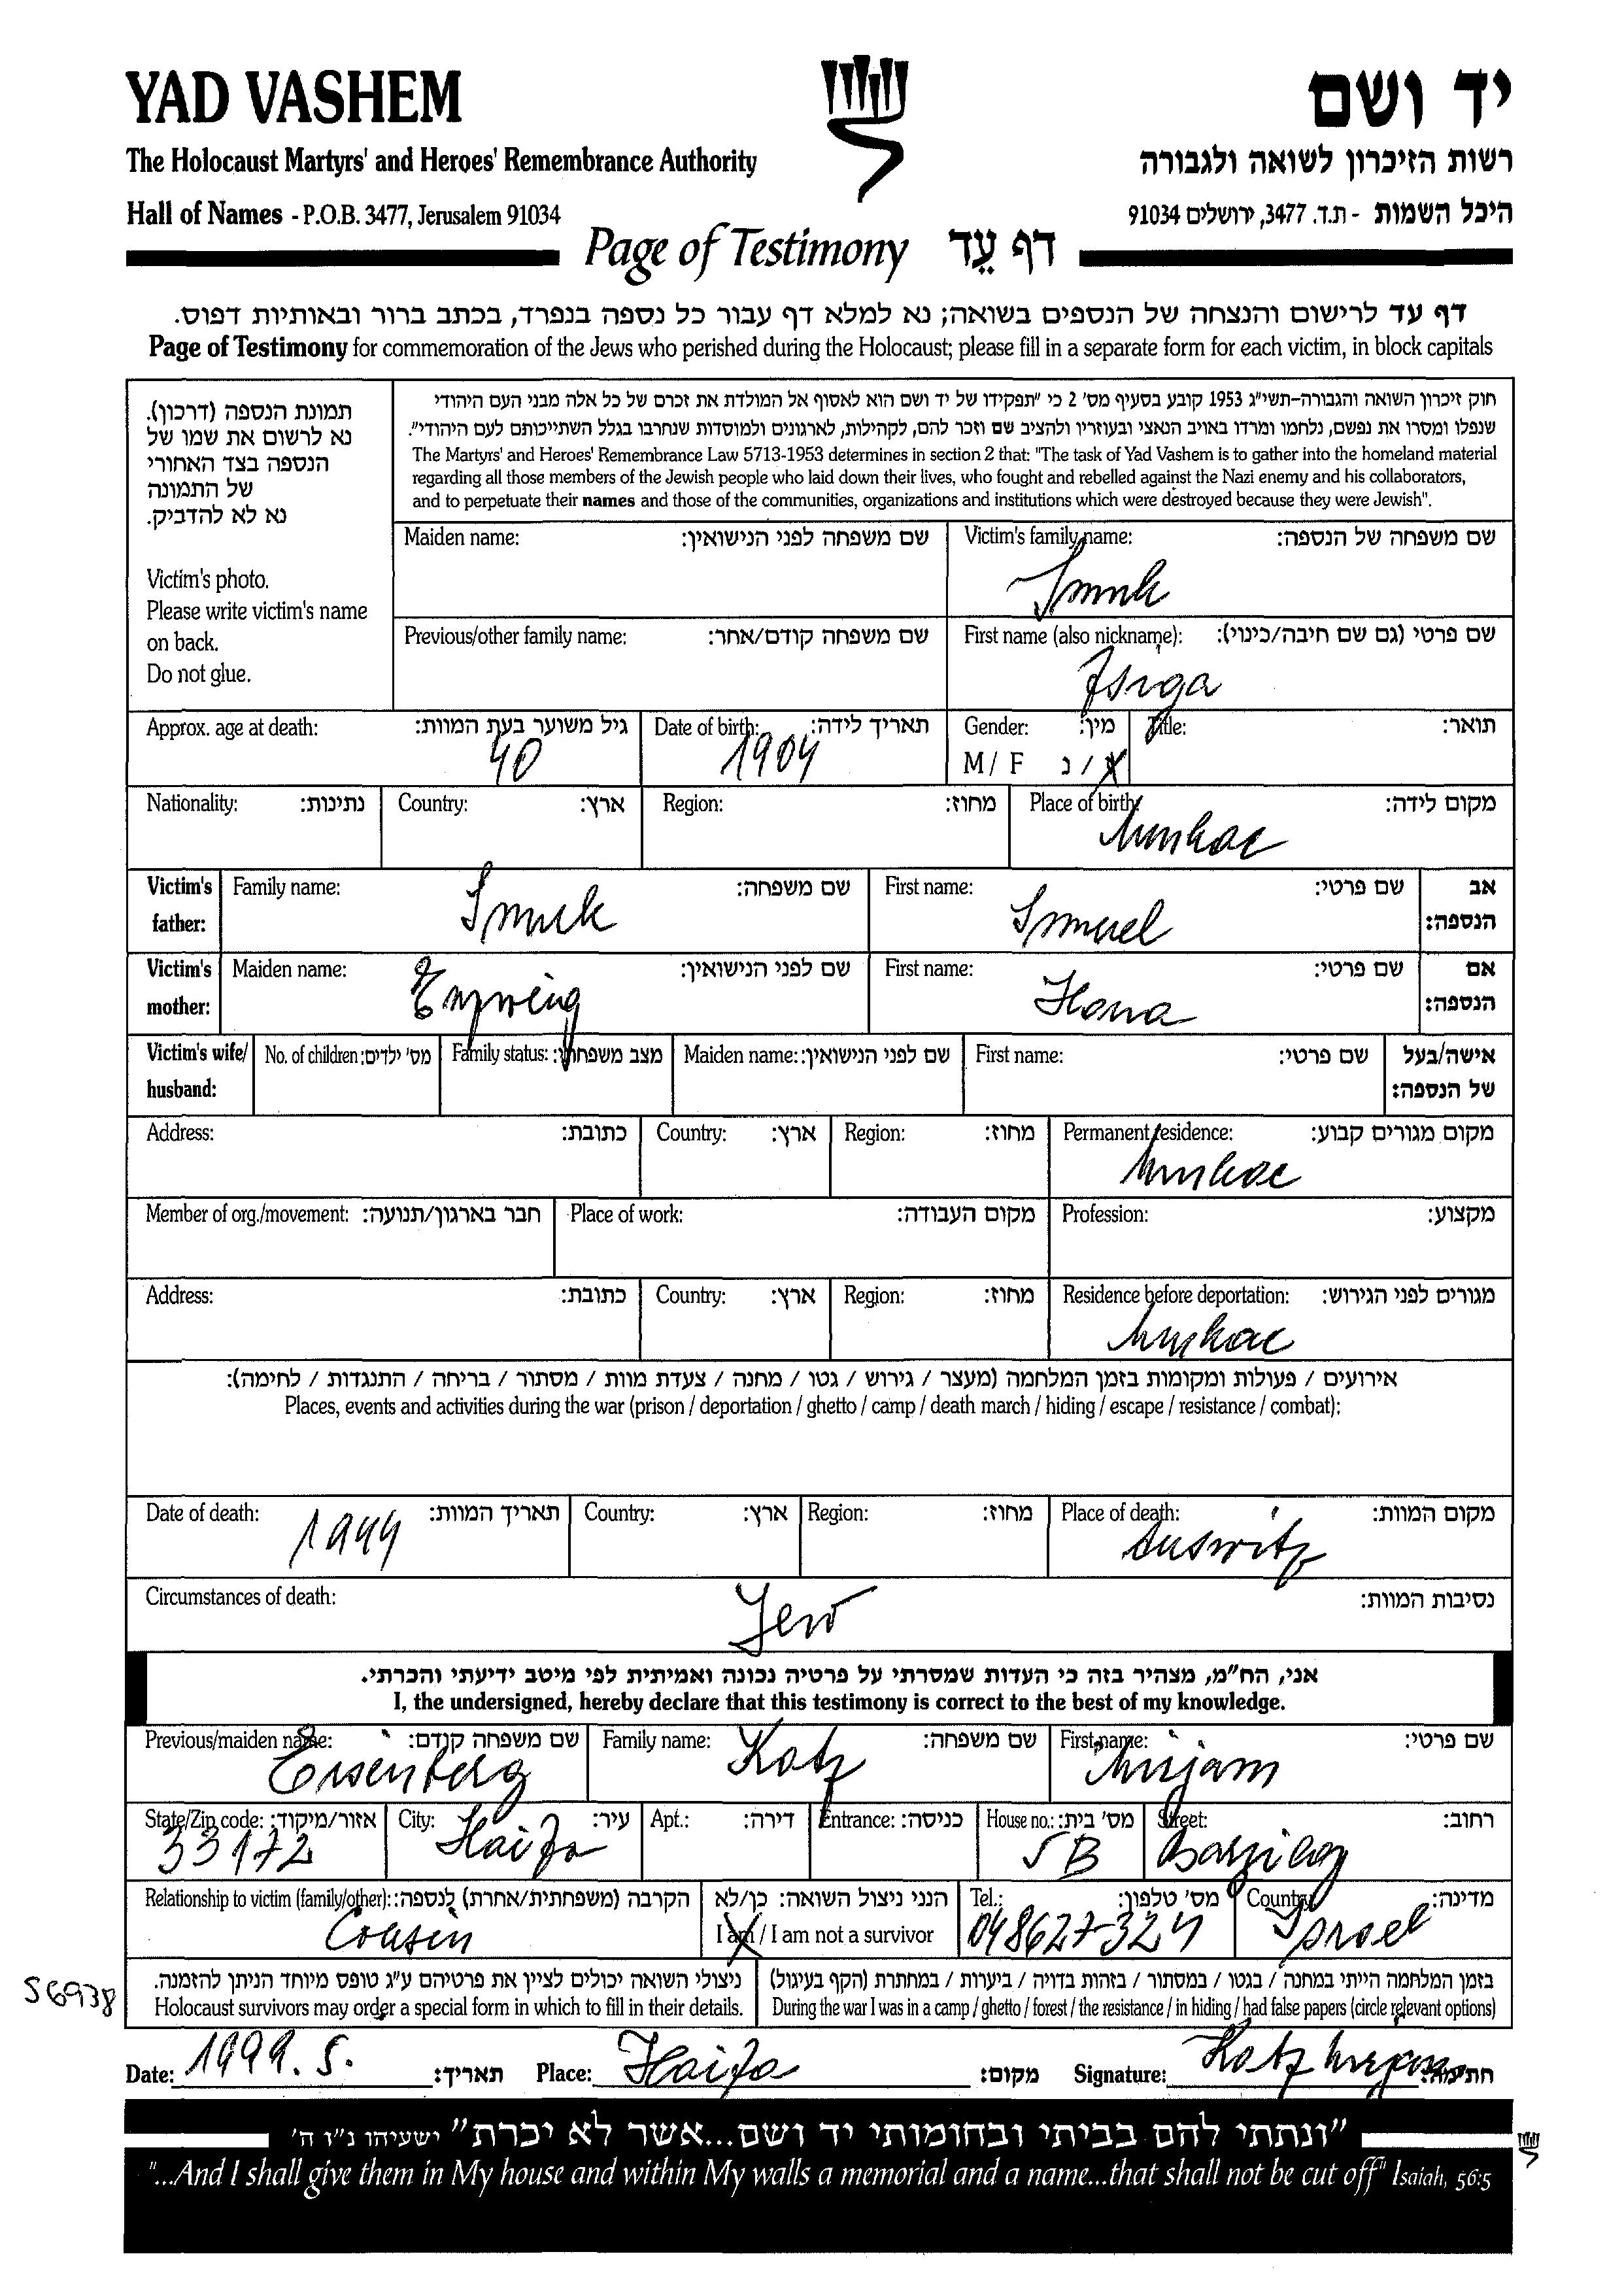 YAD VASHEM
יד ושם
The Holocaust Martyrs' and Heroes' Remembrance Authority
רשות הזיכרון לשואה ולגבורה
Hall of Names - P.O.B. 3477, Jerusalem 91034
היכל השמות - ת.ד. 3477, ירושלים 91034
Page of Testimony דף עֵד
דף עד לרישום והנצחה של הנספים בשואה; נא למלא דף עבור כל נספה בנפרד, בכתב ברור ובאותיות דפוס.
Page of Testimony for commemoration of the Jews who perished during the Holocaust; please fill in a separate form for each victim, in block capitals
תמונת הנספה (דרכון).
נא לרשום את שמו של
הנספה בצד האחורי
של התמונה
נא לא להדביק.
Victim's photo.
Please write victim's name
on back.
Do not glue.
חוק זיכרון השואה והגבורה-תשי"ג 1953 קובע בסעיף מס' 2 כי "תפקידו של יד ושם הוא לאסוף אל המולדת את זכרם של כל אלה מבני העם היהודי
שנפלו ומסרו את נפשם, נלחמו ומרדו באויב הנאצי ובעוזריו ולהציב שם וזכר להם, לקהילות, לארגונים ולמוסדות שנחרבו בגלל השתייכותם לעם היהודי".
The Martyrs' and Heroes' Remembrance Law 5713-1953 determines in section 2 that: "The task of Yad Vashem is to gather into the homeland material
regarding all those members of the Jewish people who laid down their lives, who fought and rebelled against the Nazi enemy and his collaborators,
and to perpetuate their names and those of the communities, organizations and institutions which were destroyed because they were Jewish".
Maiden name: שם משפחה לפני הנישואין:
Victim's family name: שם משפחה של הנספה:
Smuk
Previous/other family name: שם משפחה קודם/אחר:
First name (also nickname): שם פרטי (גם שם חיבה/כינוי):
Approx. age at death: גיל משוער בעת המוות:
40
Date of birth: תאריך לידה:
1904
Gender: מין:
M / F ז / נ
Title: תואר:
Nationality: נתינות:
Country: ארץ:
Region: מחוז:
Place of birth: מקום לידה:
Munkac
Victim's father:
Family name: שם משפחה:
Smuk
First name: שם פרטי:
Smuel
אב הנספה:
Victim's mother:
Maiden name: שם לפני הנישואין:
First name: שם פרטי:
Ilona
אם הנספה:
Victim's wife/ husband:
No. of children: מס' ילדים:
Family status: מצב משפחתי:
Maiden name: שם לפני הנישואין:
First name: שם פרטי:
אישה/בעל של הנספה:
Address: כתובת:
Country: ארץ:
Region: מחוז:
Permanent residence: מקום מגורים קבוע:
Munkac
Member of org./movement: חבר בארגון/תנועה:
Place of work: מקום העבודה:
Profession: מקצוע:
Address: כתובת:
Country: ארץ:
Region: מחוז:
Residence before deportation: מגורים לפני הגירוש:
Munkac
אירועים / פעולות ומקומות בזמן המלחמה (מעצר / גירוש / גטו / מחנה / צעדת מוות / מסתור / בריחה / התנגדות / לחימה):
Places, events and activities during the war (prison / deportation / ghetto / camp / death march / hiding / escape / resistance / combat):
Date of death: תאריך המוות:
1944
Country: ארץ:
Region: מחוז:
Place of death: מקום המוות:
Auswitz
Circumstances of death: נסיבות המוות:
Jew
אני, הח"מ, מצהיר בזה כי העדות שמסרתי על פרטיה נכונה ואמיתית לפי מיטב ידיעתי והכרתי.
I, the undersigned, hereby declare that this testimony is correct to the best of my knowledge.
Previous/maiden name: שם משפחה קודם:
Eisenberg
Family name: שם משפחה:
Katz
First name: שם פרטי:
Mirjam
State/Zip code: אזור/מיקוד:
33172
City: עיר:
Haifa
Apt.: דירה:
Entrance: כניסה:
House no.: מס' בית:
5B
Street: רחוב:
Barzilay
Relationship to victim (family/other): הקרבה (משפחתית/אחרת) לנספה:
Cousin
הנני ניצול השואה: כן/לא
I am / I am not a survivor
Tel.: מס' טלפון:
048627-324
Country: מדינה:
Israel
ניצולי השואה יכולים לציין את פרטיהם ע"ג טופס מיוחד הניתן להזמנה.
Holocaust survivors may order a special form in which to fill in their details.
בזמן המלחמה הייתי במחנה / בגטו / במסתור / בזהות בדויה / ביערות / במחתרת (הקף בעיגול)
During the war I was in a camp / ghetto / forest / the resistance / in hiding / had false papers (circle relevant options)
56938
Date: 1999. 5. תאריך:
Place: Haifa מקום:
Signature: Katz Mirjam חתימה:
"ונתתי להם בביתי ובחומותי יד ושם...אשר לא יכרת" ישעיהו נ"ו ה'
"...And I shall give them in My house and within My walls a memorial and a name...that shall not be cut off" Isaiah, 56:5